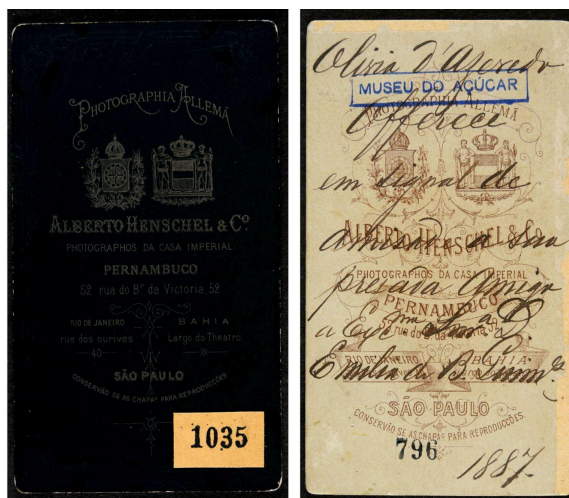 PHOTOGRAPHIA ALLEMÃ
ALBERTO HENSCHEL & Cº
PHOTOGRAPHOS DA CASA IMPERIAL
PERNAMBUCO
52 rua do Bº da Victoria 52
RIO DE JANEIRO
rua dos ourives
40
BAHIA
Largo do Theatro
SÃO PAULO
CONSERVÃO SE AS CHAPAS PARA REPRODUCÇÕES
1035
Olivia d'Azevedo
MUSEU DO AÇÚCAR
PHOTOGRAPHIA ALLEMÃ
Offerece
em signal de
ALBERTO HENSCHEL & Cº
amisade a sua
PHOTOGRAPHOS DA CASA IMPERIAL
presada Amiga
PERNAMBUCO
rua do Bº da Victoria 52
a Exma Snra D.
RIO DE JANEIRO
BAHIA
Emilia de B.
SÃO PAULO
CONSERVÃO SE AS CHAPAS PARA REPRODUCÇÕES
796
1887.